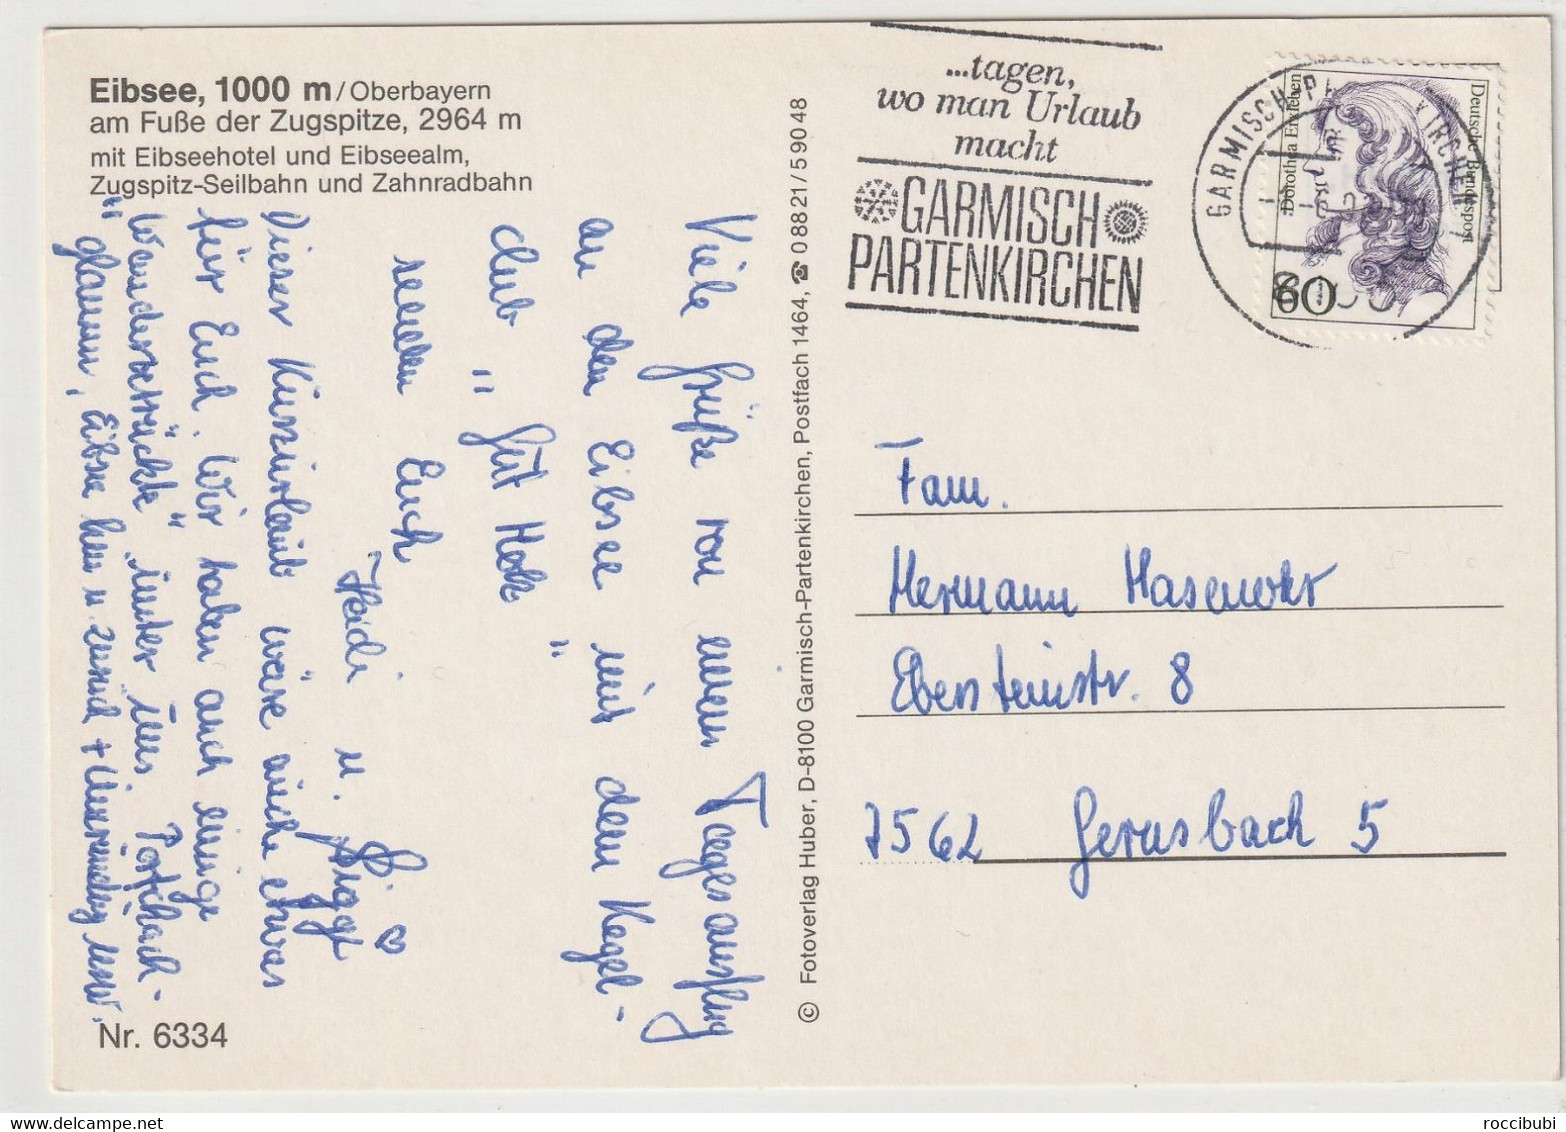 Eibsee, 1000 m/Oberbayern
am Fuße der Zugspitze, 2964 m
mit Eibseehotel und Eibseealm,
Zugspitz-Seilbahn und Zahnradbahn
Viele Grüße von einem Tagesausflug
an den Eibsee mit dem Kegel-
club "Gut Holz"
senden Euch
Heidi u. Siggi
Dieser Kurzurlaub wäre auch etwas
für Euch. Wir haben auch einige
"Wanderverrückte" unter uns.
glamm, Eibsee hin u. zurück + Umrundung usw.
Nr. 6334
© Fotoverlag Huber, D-8100 Garmisch-Partenkirchen, Postfach 1464, ☎ 08821/59048
...tagen,
wo man Urlaub
macht
GARMISCH
PARTENKIRCHEN
GARMISCH-P IRCHEN 1
Dorothea Erxleben
Deutsche Bundespost
60
Fam.
Hermann Hasenohr
Ebersteinstr. 8
7562 Gernsbach 5
roccibubi